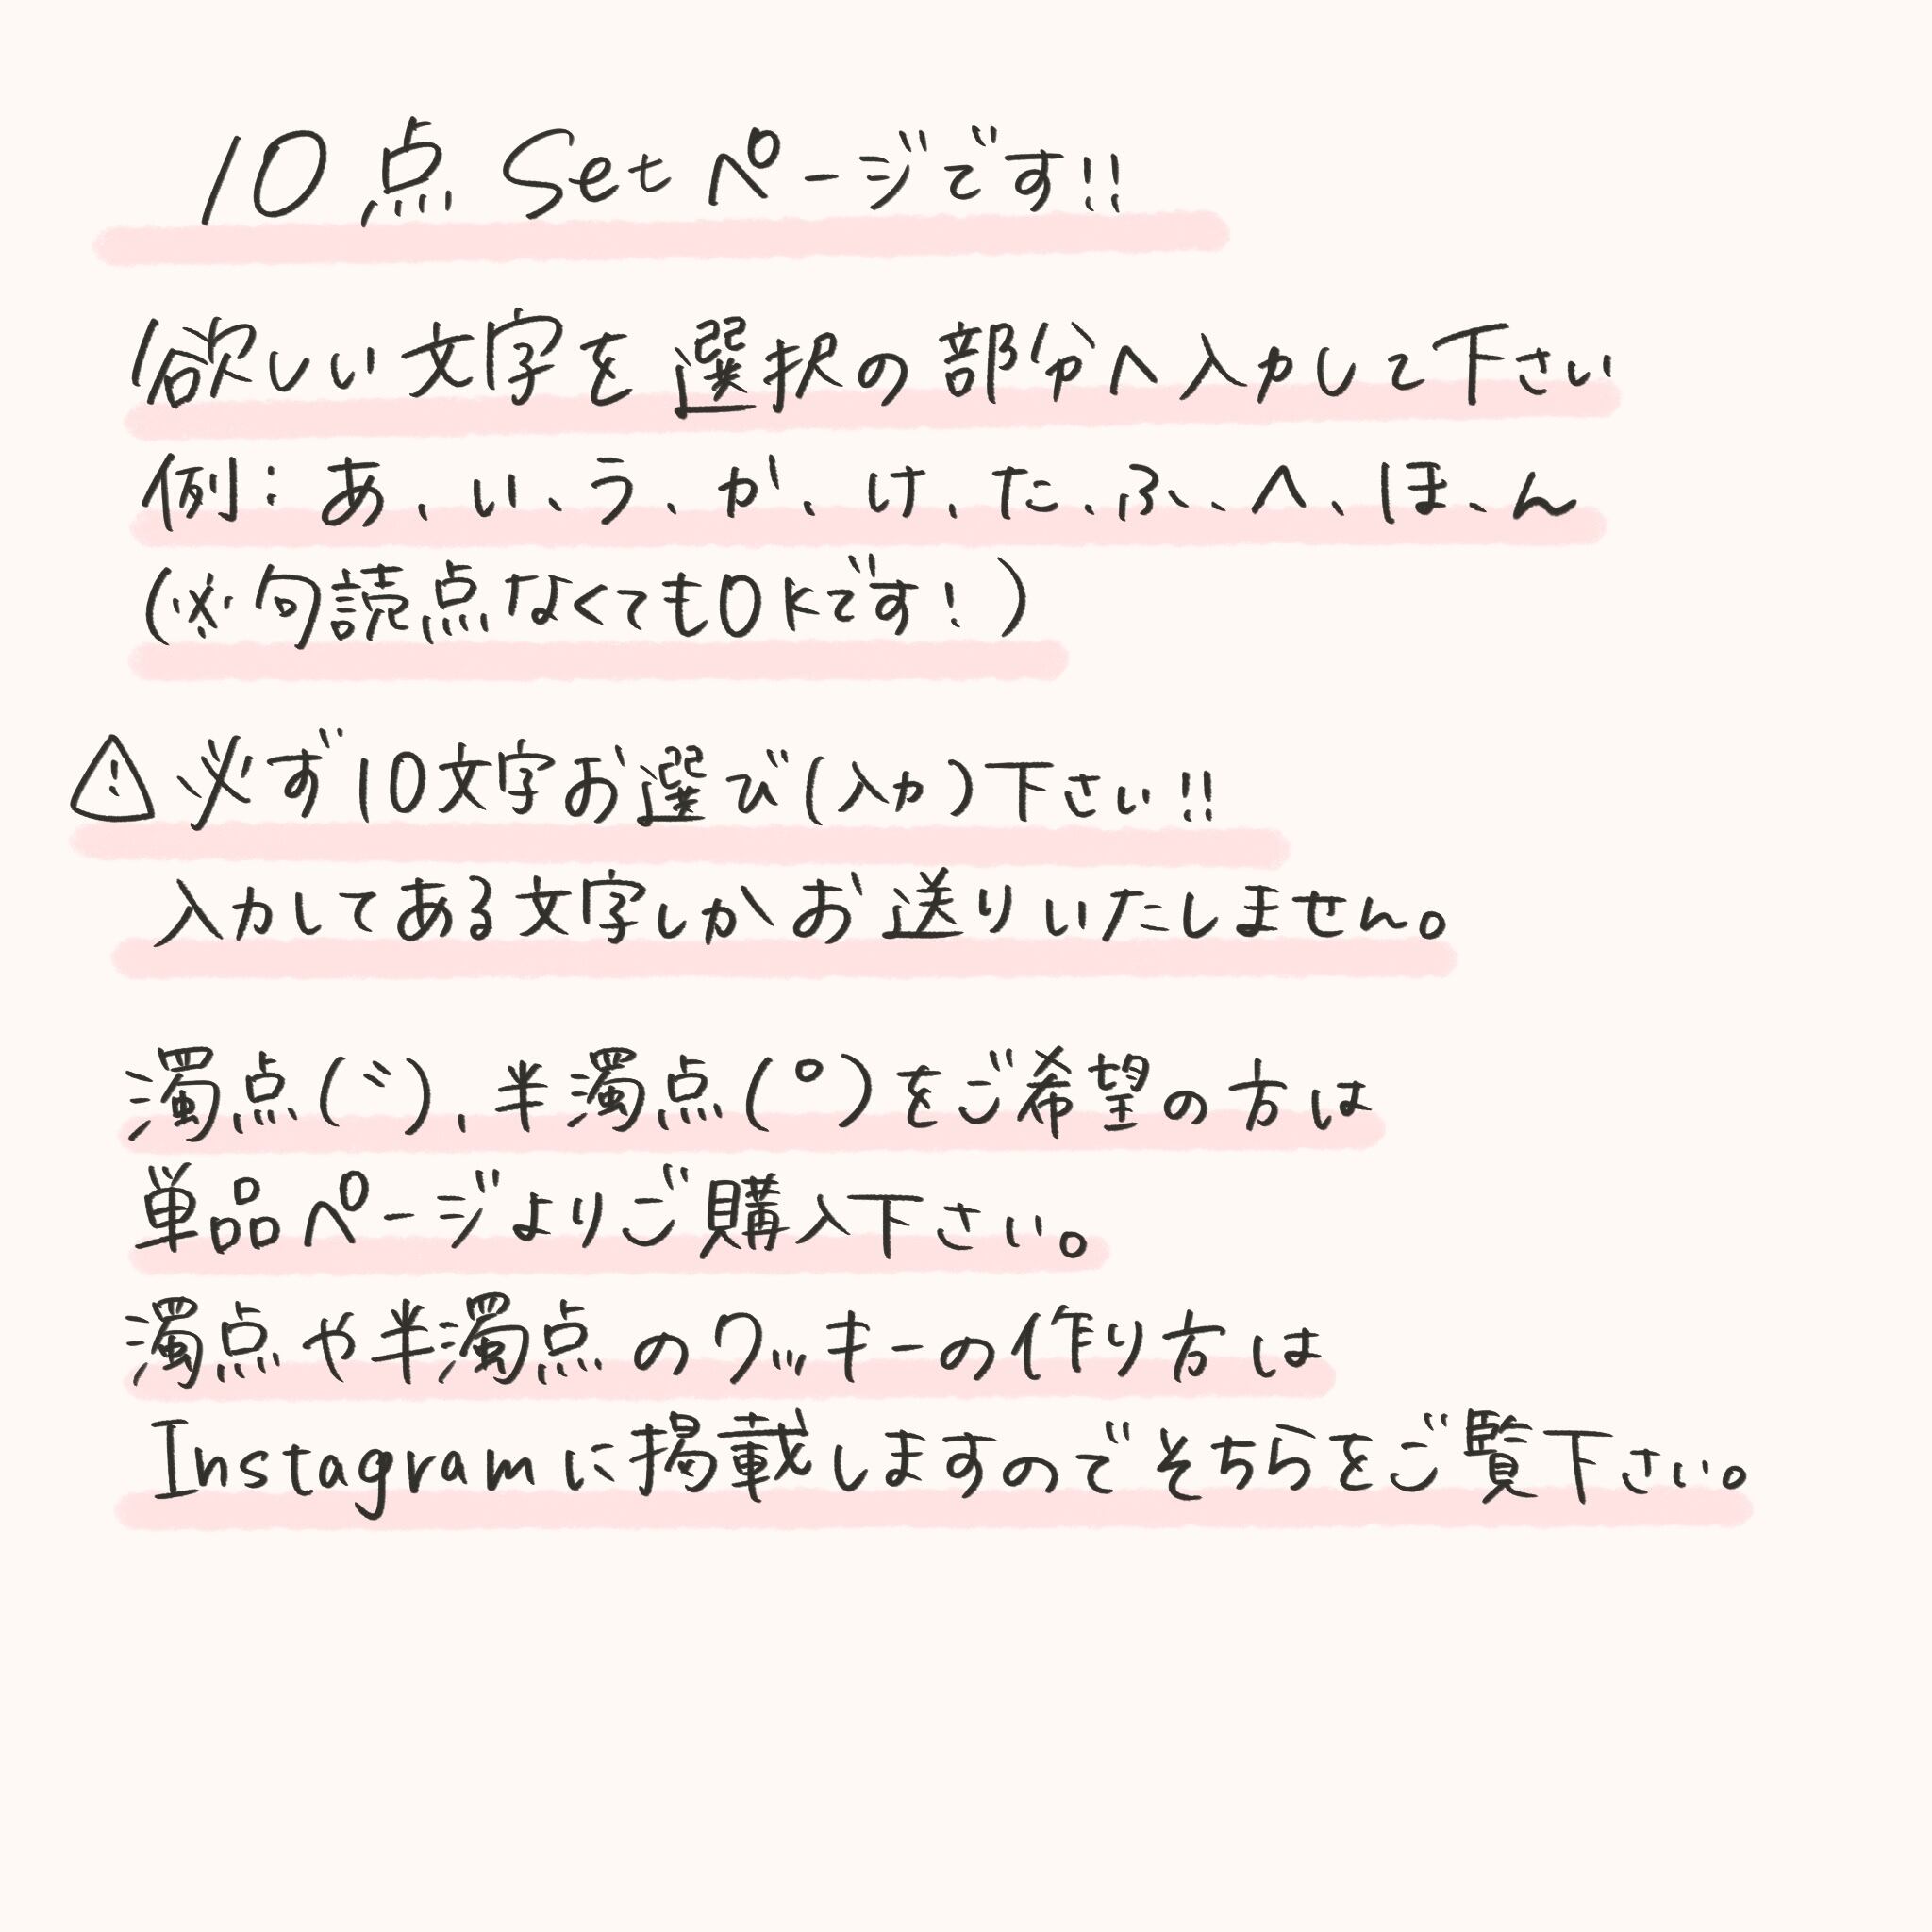 10点Setページです!!
欲しい文字を選択の部分へ入力して下さい
例:あ、い、う、か、け、た、ふ、へ、ほ、ん
(※句読点なくてもOKです!)
⚠必ず10文字お選び(入力)下さい!!
入力してある文字しかお送りいたしません。
濁点(゛)、半濁点(゜)をご希望の方は
単品ページよりご購入下さい。
濁点や半濁点のクッキーの作り方は
Instagramに掲載しますのでそちらをご覧下さい。